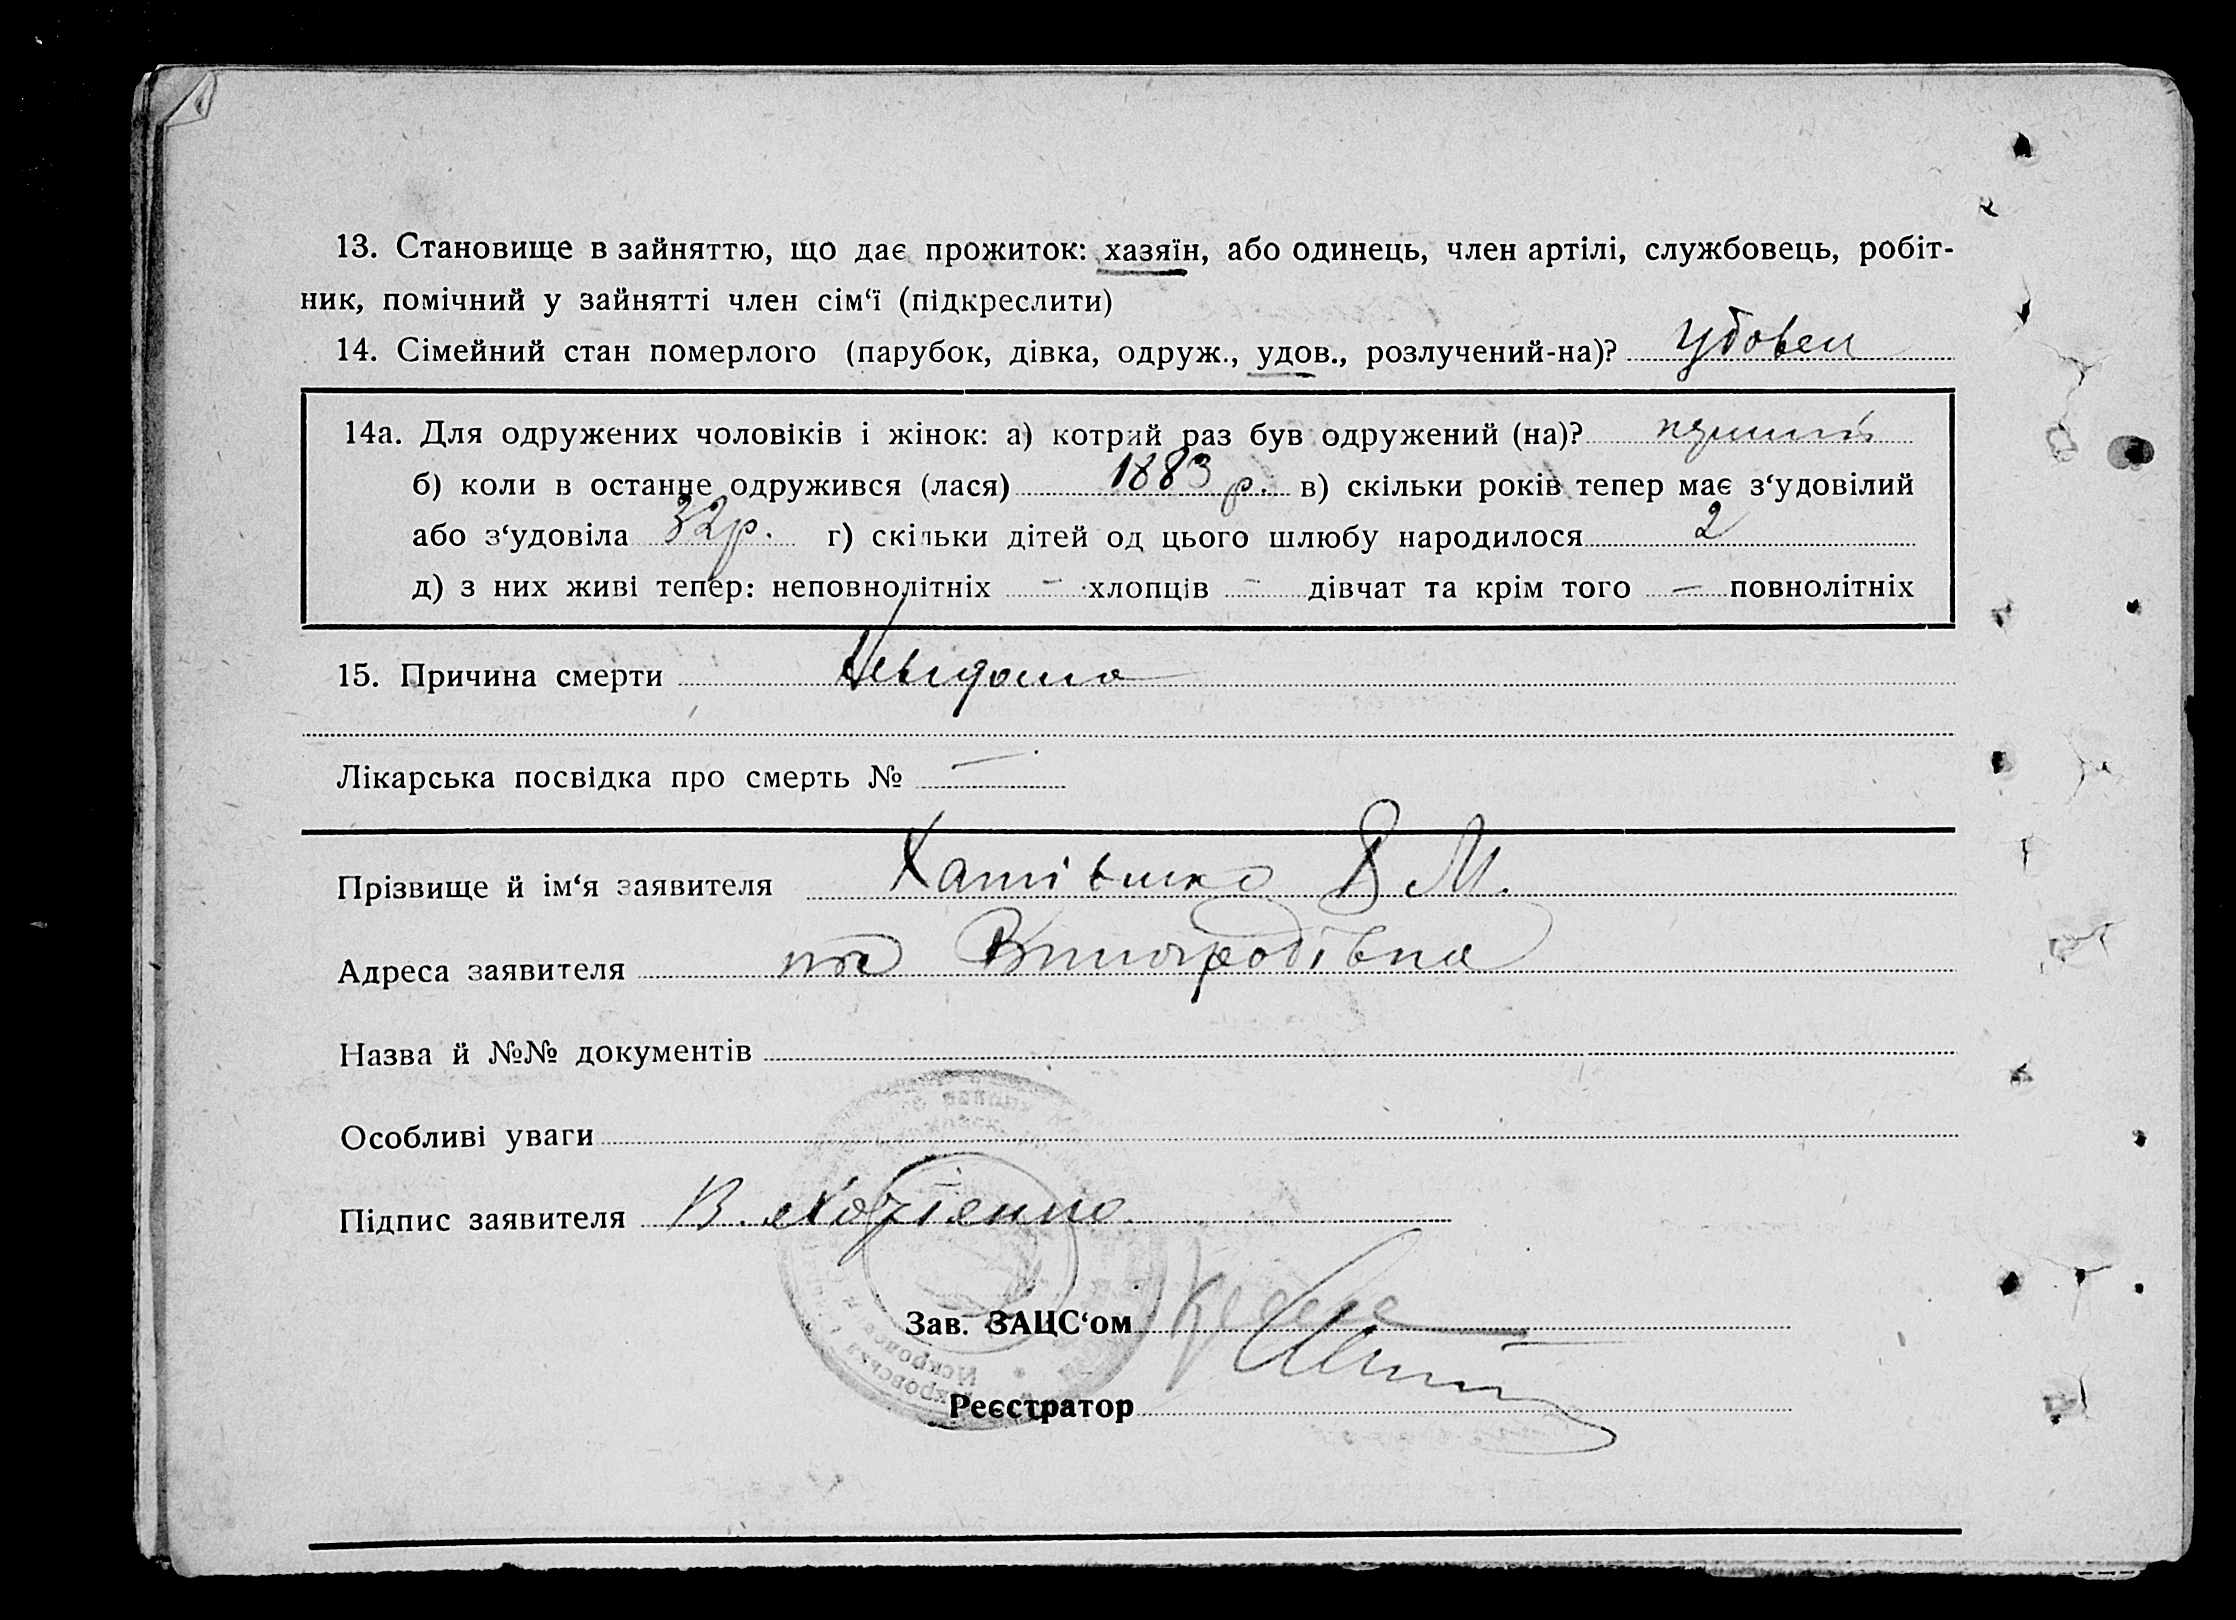 13. Становище в зайняттю, що дає прожиток: хазяїн, або одинець, член артілі, службовець, робіт-
ник, помічний у зайнятті член сім‘ї (підкреслити)
14. Сімейний стан померлого (парубок, дівка, одруж., удов., розлучений-на)? удовец
14а. Для одружених чоловіків і жінок: а) котрий раз був одружений (на)?
б) коли в останнє одружився (лася) 1883 р. в) скільки років тепер має з‘удовілий
або з‘удовіла 32р. г) скільки дітей од цього шлюбу народилося 2
д) з них живі тепер: неповнолітніх - хлопців - дівчат та крім того - повнолітніх
15. Причина смерти Невідома
Лікарська посвідка про смерть № —
Прізвище й ім‘я заявителя М.
Адреса заявителя
Назва й №№ документів
Особливі уваги
Підпис заявителя В.
Зав. ЗАЦС‘ом
Реєстратор